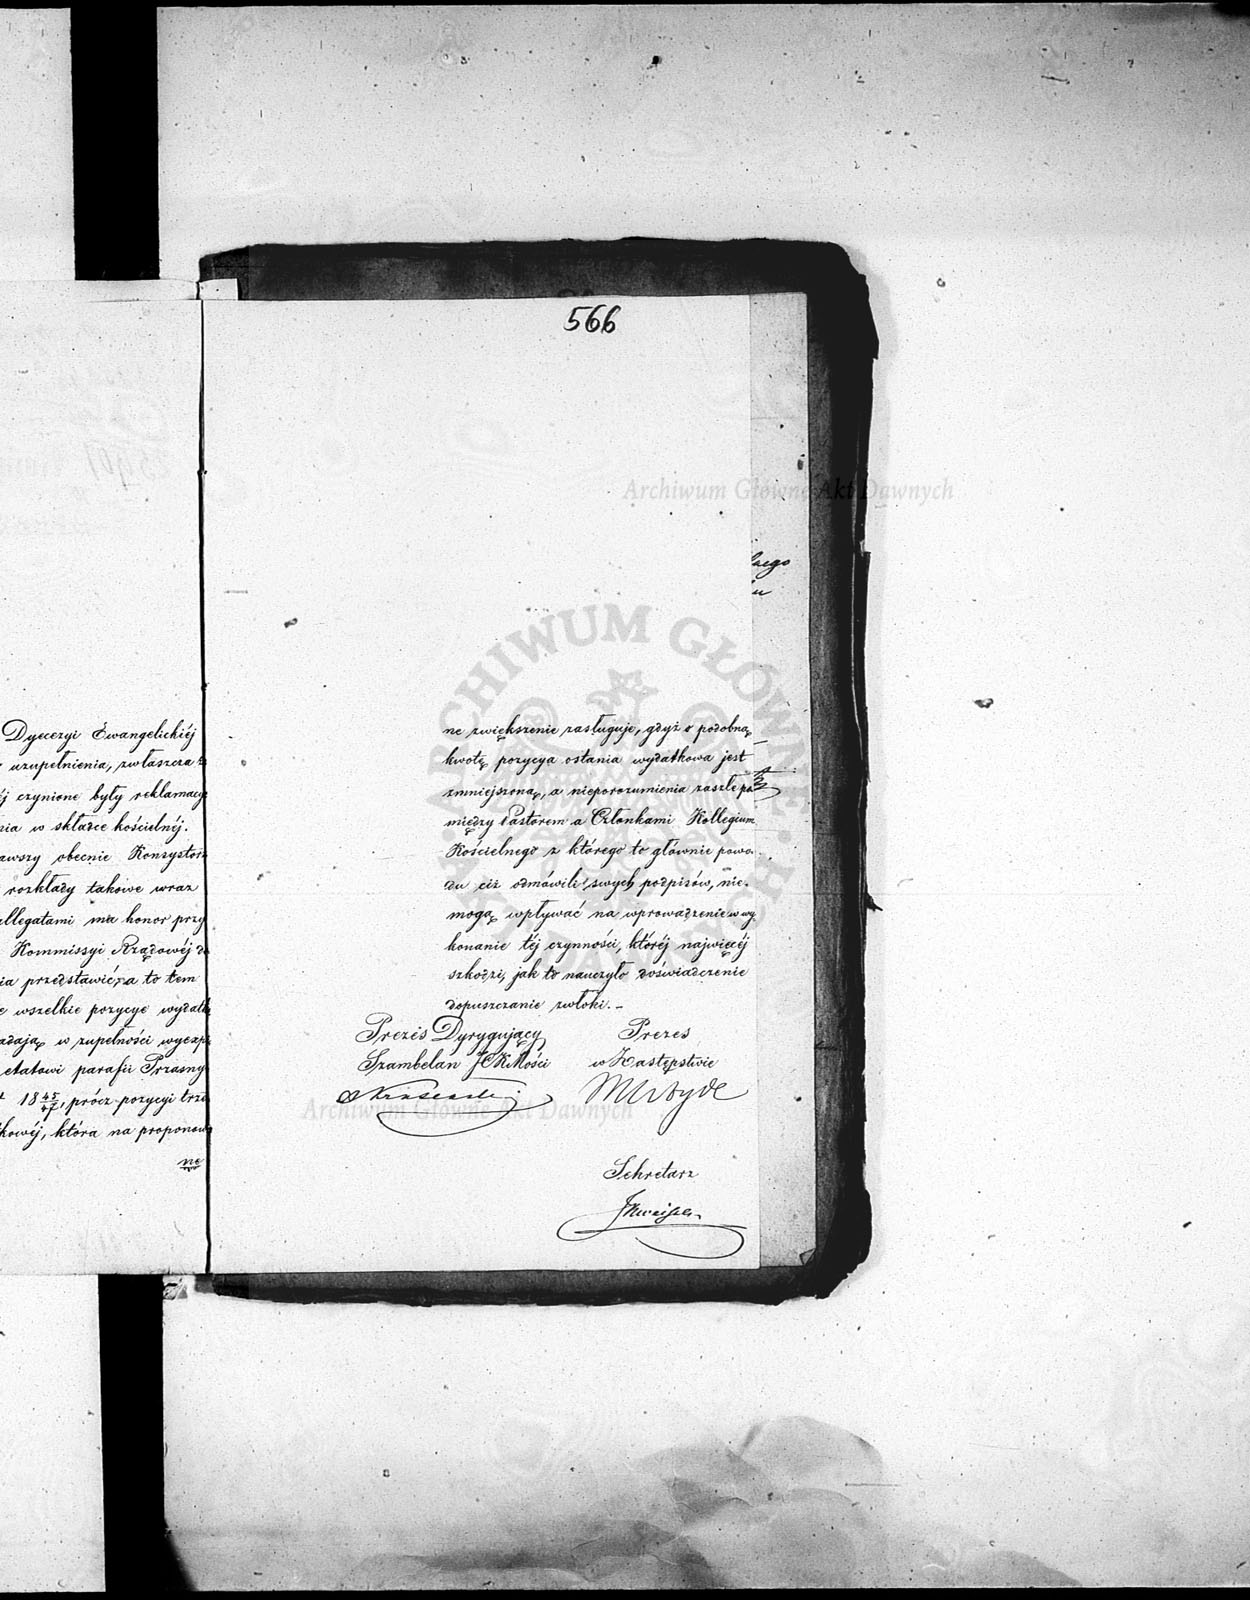 Dyecezyi Ewangelickiéj
uzupełnienia, zwłaszcza
czynione były reklamacy
w składce kościelnéj.
obecnie Konsystor
rozkłady takowe wraz
allegatami ma honor przy
Kommissyi Rządowéj do
przedstawić, a to tem
wszelkie pozycye wydatk
w zupełności
etatowi parafii Przasny
18 45/47, prócz pozycyi trze
która na proponow
ne
566
ne zwiększenie zasługuje, gdyż o podobną
kwotę pozycya ostania wydatkowa jest
zmniejszoną, a nieporozumienia zaszłe po
między Pastorem a Członkami Kollegium
Kościelnego z którego to głównie powo
du ciż odmówili swych podpisów, nie
mogą wpływać na wprowadzenie w wy
konanie téj czynności, któréj najwięcéj
szkodzi, jak to nauczyło doświadczenie
dopuszczanie zwłoki. –
Prezes Dyrygujący
Szambelan JCKMości
Prezes
w Zastępstwie
Sekretarz
Archiwum Główne Akt Dawnych
ARCHIWUM GŁÓWNE AKT DAWNYCH
Archiwum Główne Akt Dawnych